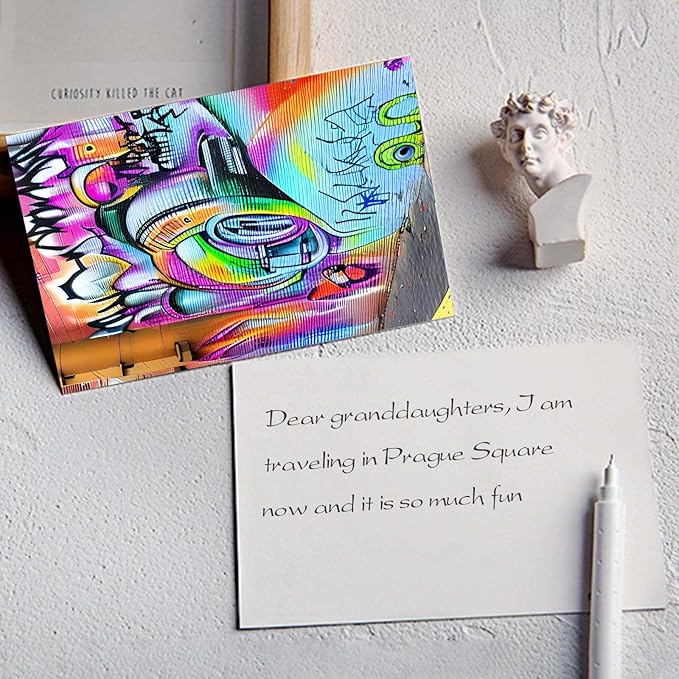 CURIOSITY KILLED THE CAT
Dear granddaughters, I am
traveling in Prague Square
now and it is so much fun